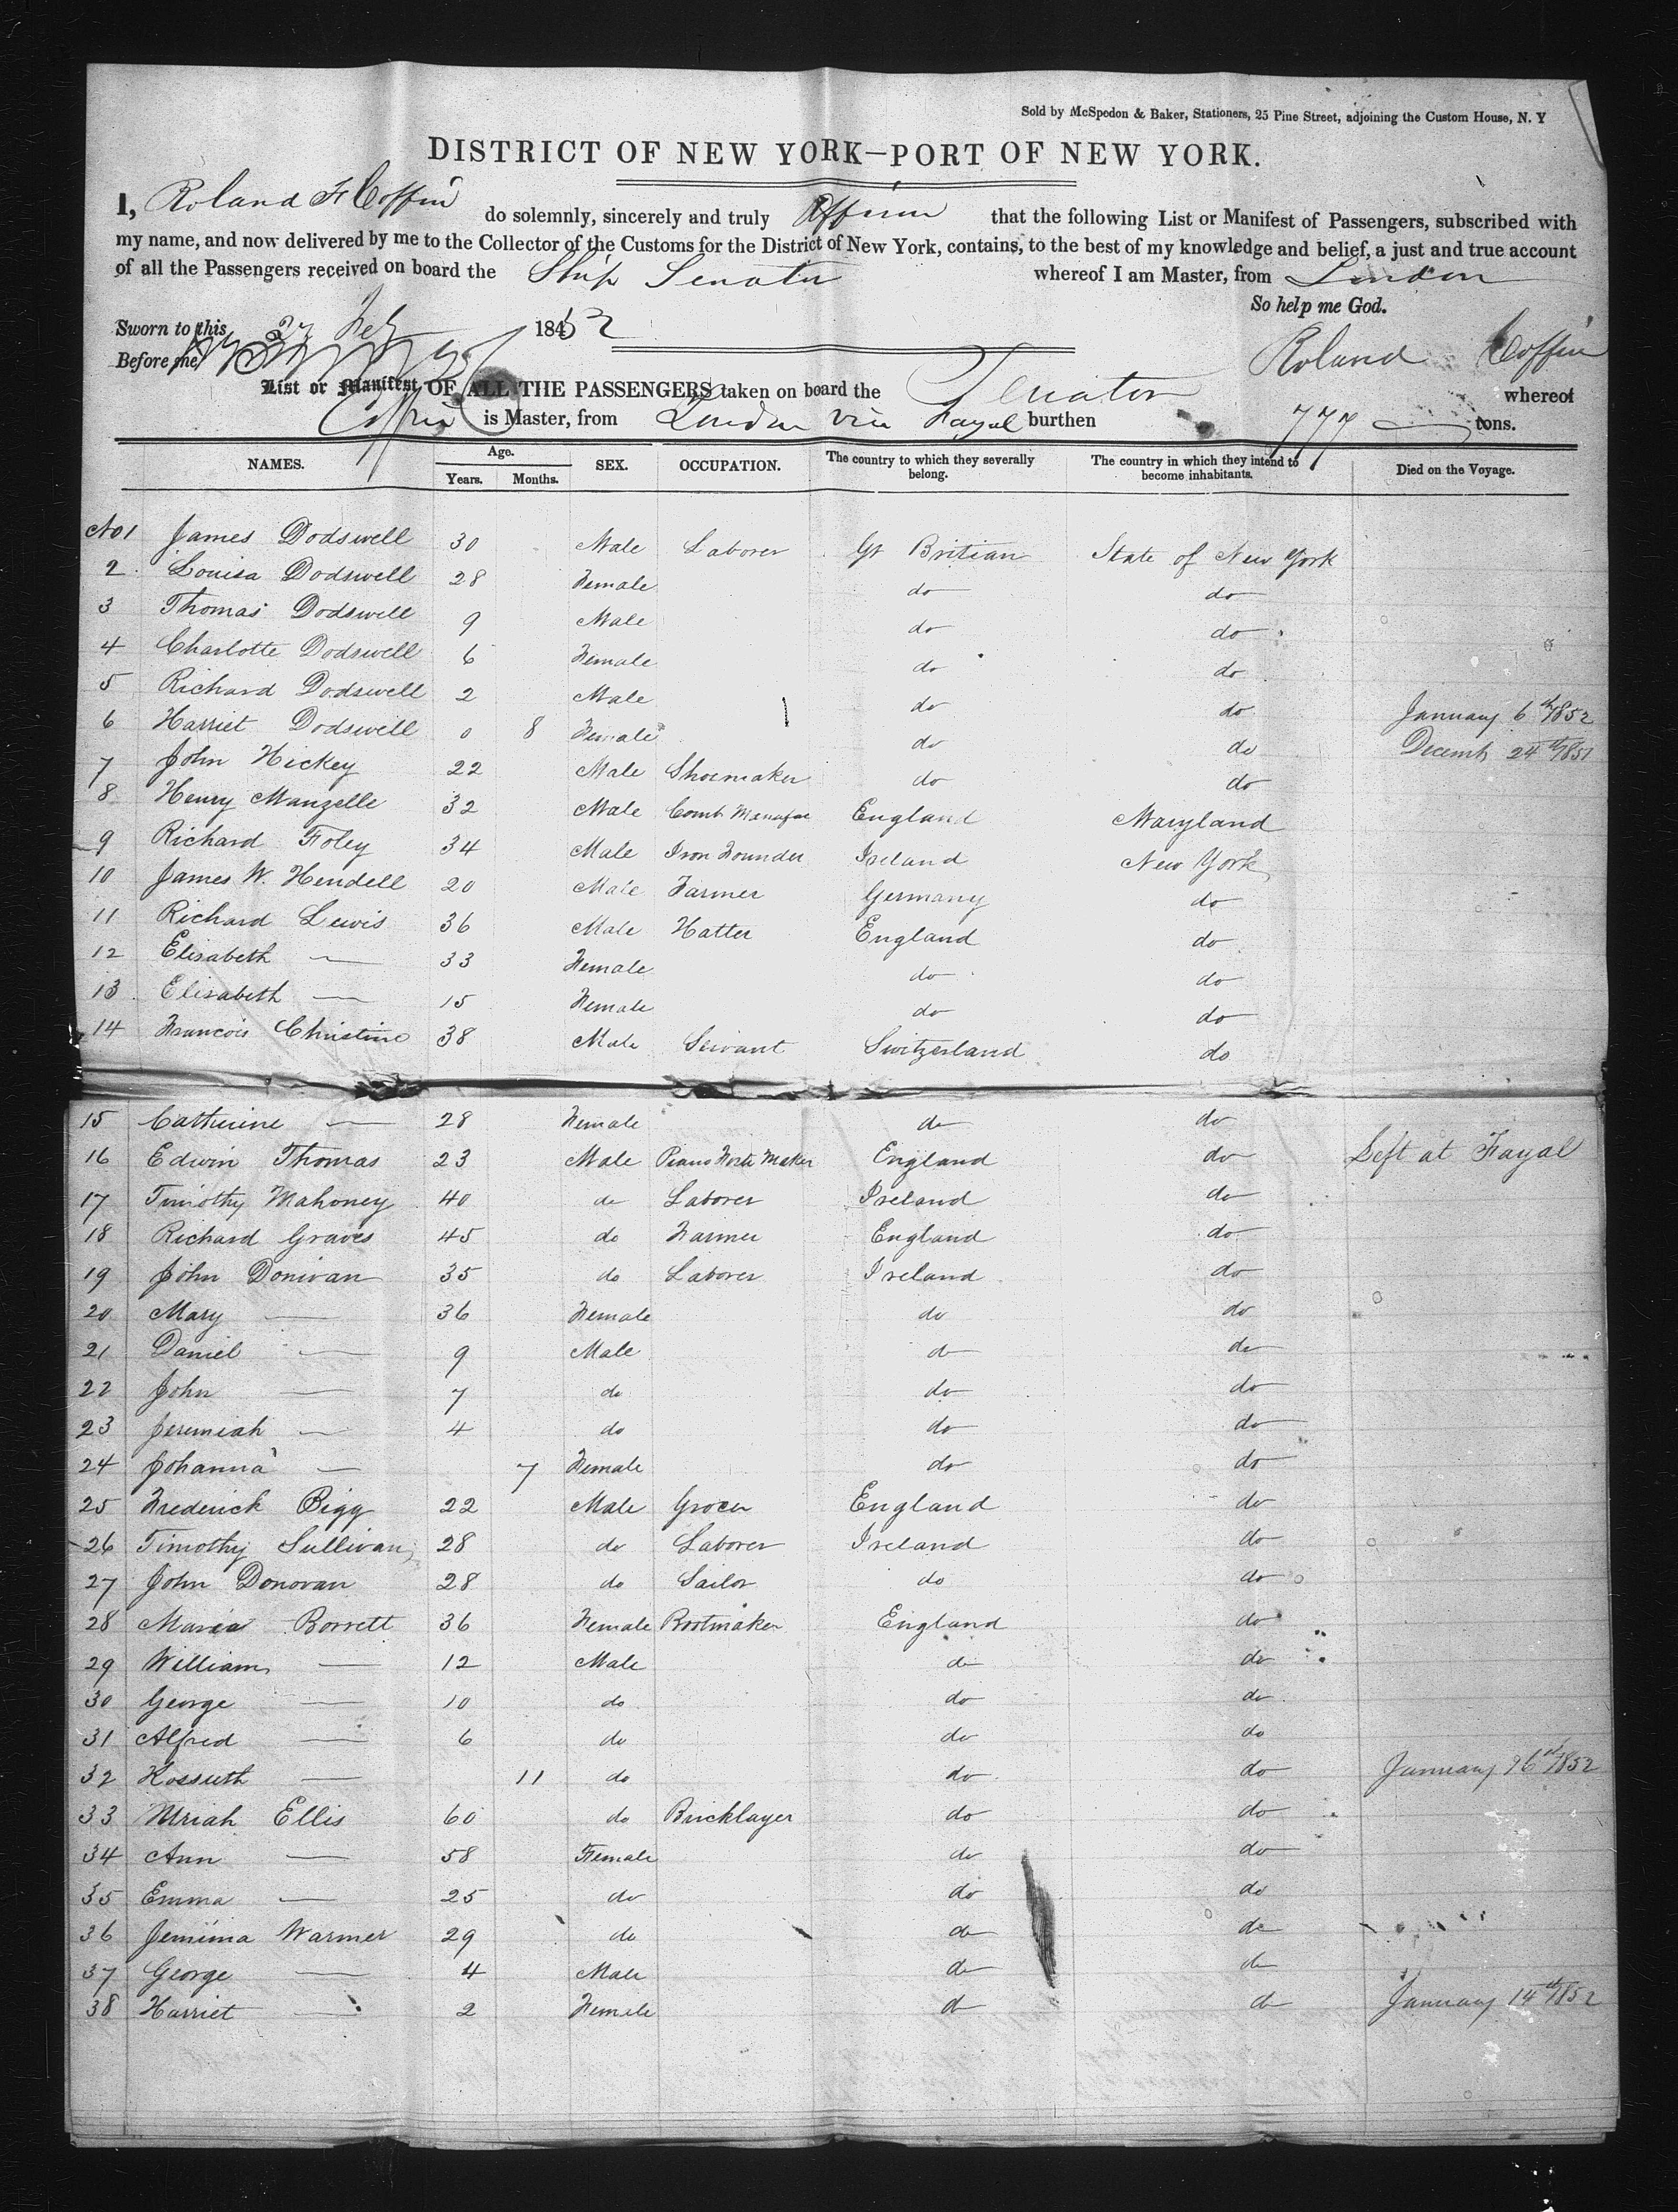 Sold by McSpedon & Baker, Stationers, 25 Pine Street, adjoining the Custom House, N. Y
DISTRICT OF NEW YORK—PORT OF NEW YORK.
I, Roland F Coffin do solemnly, sincerely and truly Affirm that the following List or Manifest of Passengers, subscribed with
my name, and now delivered by me to the Collector of the Customs for the District of New York, contains, to the best of my knowledge and belief, a just and true account
of all the Passengers received on board the Ship Senator whereof I am Master, from London
So help me God.
Sworn to this 27 Feb 1852
Before me Roland Coffin
List or Manifest OF ALL THE PASSENGERS taken on board the Senator whereof
Coffin is Master, from London via Fayal burthen 777 tons.
NAMES. Age. Years. Months. SEX. OCCUPATION. The country to which they severally belong. The country in which they intend to become inhabitants. Died on the Voyage.
No 1 James Dodswell 30 Male Laborer Gt Britian State of New York
2 Louisa Dodswell 28 Female do do
3 Thomas Dodswell 9 Male do do
4 Charlotte Dodswell 6 Female do do
5 Richard Dodswell 2 Male do do January 6th 1852
6 Harriet Dodswell 0 8 Female do do Decemb 24th 1851
7 John Hickey 22 Male Shoemaker do do
8 Henry Manzelle 32 Male Comb Manufac England Maryland
9 Richard Foley 34 Male Iron Founder Ireland New York
10 James W. Hendell 20 Male Farmer Germany do
11 Richard Lewis 36 Male Hatter England do
12 Elisabeth — 33 Female do do
13 Elisabeth — 15 Female do do
14 Francois Christine 38 Male Servant Switzerland do
15 Catherine — 28 Female do do
16 Edwin Thomas 23 Male Piano Forte Maker England do Left at Fayal
17 Timothy Mahoney 40 do Laborer Ireland do
18 Richard Graves 45 do Farmer England do
19 John Donivan 35 do Laborer Ireland do
20 Mary — 36 Female do do
21 Daniel — 9 Male do do
22 John — 7 do do do
23 Jeremiah — 4 do do do
24 Johanna — 7 Female do do
25 Frederick Bigg 22 Male Grocer England do
26 Timothy Sullivan 28 do Laborer Ireland do
27 John Donovan 28 do Sailor do do
28 Maria Borrett 36 Female Bootmaker England do
29 William — 12 Male do do
30 George — 10 do do do
31 Alfred — 6 do do do
32 Kossuth — 11 do do do January 1852
33 Uriah Ellis 60 do Bricklayer do do
34 Ann — 58 Female do do
35 Emma — 25 do do do
36 Jemima Warmer 29 do do do
37 George — 4 Male do do
38 Harriet — 2 Female do do January 14th 1852